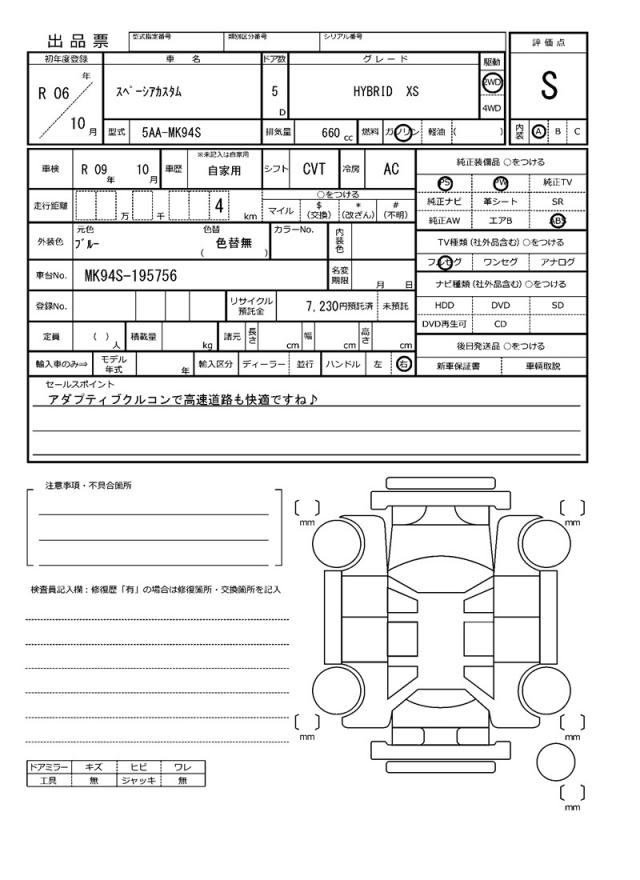 出品票 型式指定番号 類別区分番号 シリアル番号
評価点
初年度登録 車名 ドア数 グレード 駆動
R 06 年 10 月 スペーシアカスタム 5 D HYBRID XS 2WD 4WD S
型式 5AA-MK94S 排気量 660 cc 燃料 ガソリン 軽油 ( ) 内装 A B C
車検 R 09 年 10 月 車歴 ※未記入は自家用 自家用 シフト CVT 冷房 AC
純正装備品 ○をつける
PS PW 純正TV
純正ナビ 革シート SR
純正AW エアB ABS
走行距離 万 千 4 km ○をつける
マイル $(交換) *(改ざん) #(不明)
外装色 元色 ブルー 色替 色替無 ( ) カラーNo. 内装色
TV種類 (社外品含む) ○をつける
フルセグ ワンセグ アナログ
車台No. MK94S-195756 名変期限 月 日
ナビ種類 (社外品含む) ○をつける
HDD DVD SD
DVD再生可 CD
登録No. リサイクル預託金 7,230円預託済 未預託
定員 ( ) 人 積載量 kg 諸元 長さ cm 幅 cm 高さ cm
後日発送品 ○をつける
新車保証書 車輌取説
輸入車のみ⇒ モデル年式 年 輸入区分 ディーラー 並行 ハンドル 左 右
セールスポイント
アダプティブクルコンで高速道路も快適ですね♪
注意事項・不具合箇所
検査員記入欄：修復歴「有」の場合は修復箇所・交換箇所を記入
mm
mm
mm
mm
mm
ドアミラー キズ ヒビ ワレ
工具 無 ジャッキ 無